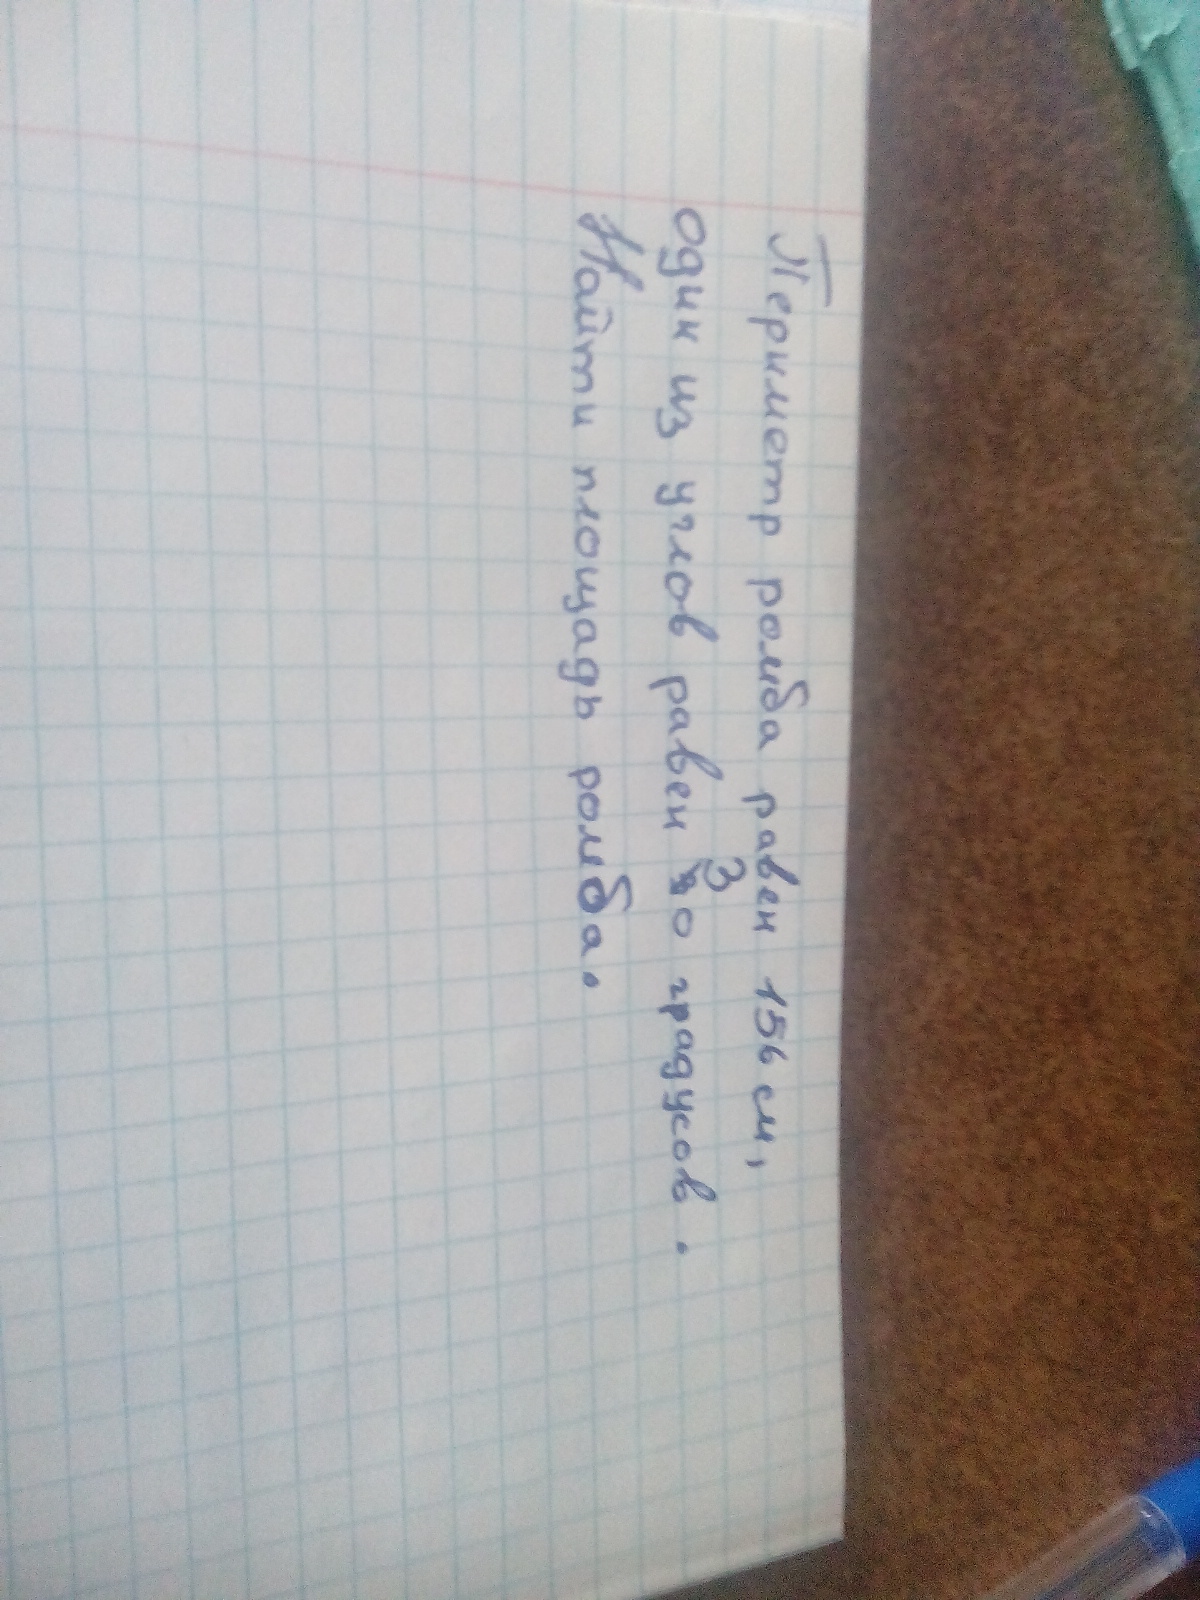 Периметр ромба равен 156 см,
один из углов равен 30 градусов.
Найти площадь ромба.